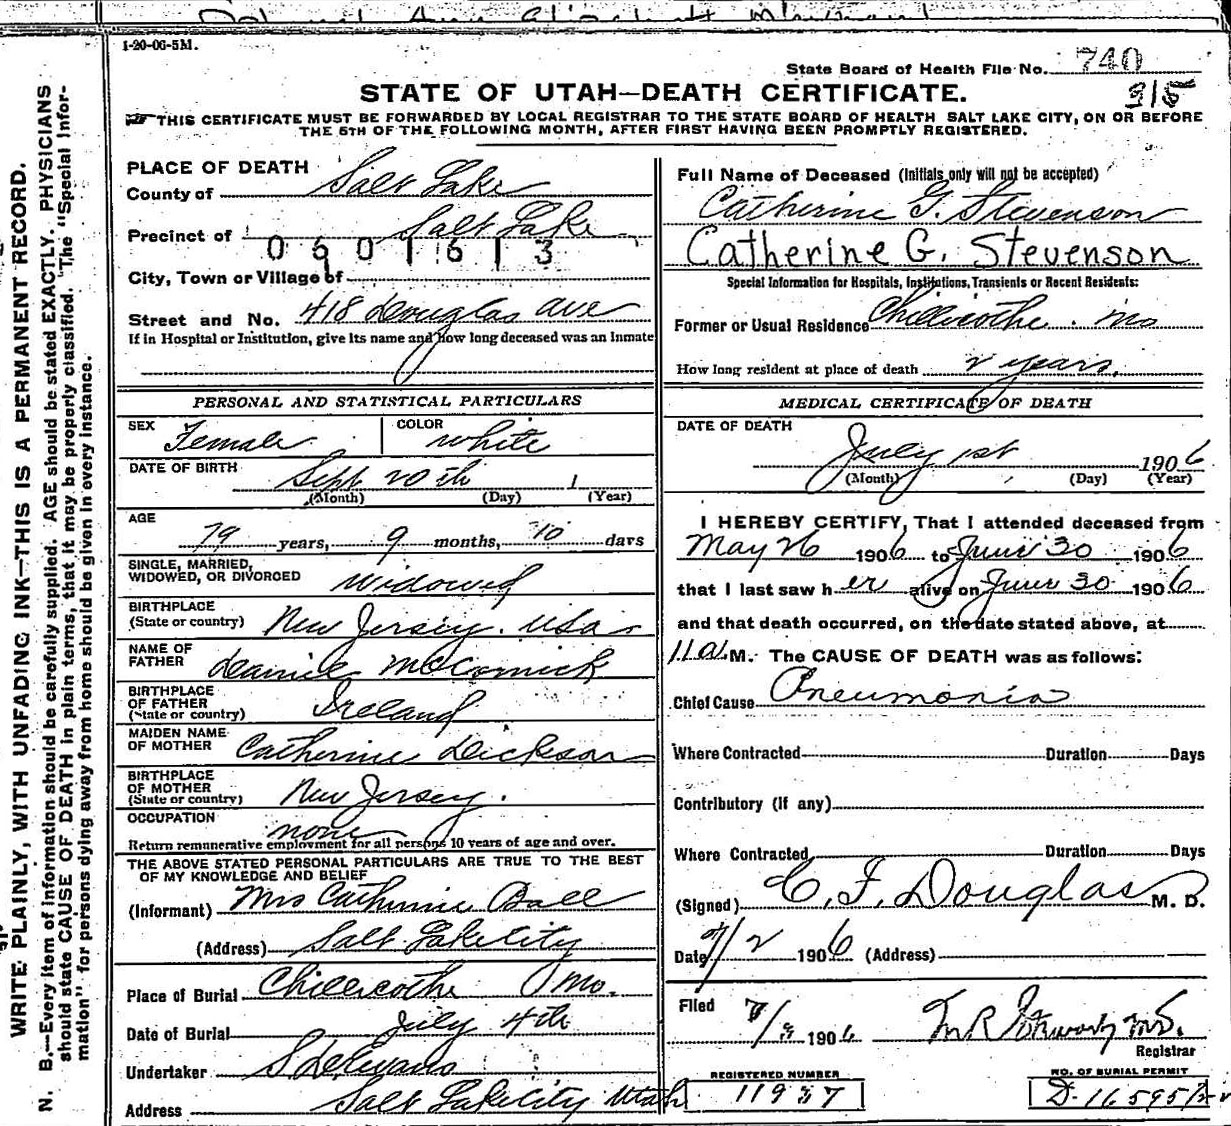 1-20-06-5M.
State Board of Health File No. 740
STATE OF UTAH—DEATH CERTIFICATE.
315
THIS CERTIFICATE MUST BE FORWARDED BY LOCAL REGISTRAR TO THE STATE BOARD OF HEALTH SALT LAKE CITY, ON OR BEFORE
THE 5TH OF THE FOLLOWING MONTH, AFTER FIRST HAVING BEEN PROMPTLY REGISTERED.
WRITE PLAINLY, WITH UNFADING INK—THIS IS A PERMANENT RECORD.
N. B.—Every item of information should be carefully supplied. AGE should be stated EXACTLY. PHYSICIANS
should state CAUSE OF DEATH in plain terms, that it may be properly classified. The "Special Infor-
mation" for persons dying away from home should be given in every instance.
PLACE OF DEATH
County of Salt Lake
Precinct of Salt Lake
0601613
City, Town or Village of
Street and No. 418 Douglas Ave
If in Hospital or Institution, give its name and how long deceased was an Inmate
PERSONAL AND STATISTICAL PARTICULARS
SEX Female COLOR White
DATE OF BIRTH Sept 20th 1
(Month) (Day) (Year)
AGE
79 years, 9 months, 10 days
SINGLE, MARRIED,
WIDOWED, OR DIVORCED Widowed
BIRTHPLACE
(State or country) New Jersey. USA
NAME OF
FATHER McCormick
BIRTHPLACE
OF FATHER
(State or country) Ireland
MAIDEN NAME
OF MOTHER Catherine Dickson
BIRTHPLACE
OF MOTHER
(State or country) New Jersey.
OCCUPATION
none
Return remunerative employment for all persons 10 years of age and over.
THE ABOVE STATED PERSONAL PARTICULARS ARE TRUE TO THE BEST
OF MY KNOWLEDGE AND BELIEF
(Informant) Mrs Catherine Ball
(Address) Salt Lake City
Place of Burial Chillicothe Mo.
Date of Burial July 4th
Undertaker S D Evans
Address Salt Lake City Utah
Full Name of Deceased (Initials only will not be accepted)
Catherine G. Stevenson
Catherine G. Stevenson
Special Information for Hospitals, Institutions, Transients or Recent Residents:
Former or Usual Residence Chillicothe. Mo
How long resident at place of death 2 years.
MEDICAL CERTIFICATE OF DEATH
DATE OF DEATH
July 1st 1906
(Month) (Day) (Year)
I HEREBY CERTIFY, That I attended deceased from
May 26 1906 to June 30 1906
that I last saw h er alive on June 30 1906
and that death occurred, on the date stated above, at
11 a M. The CAUSE OF DEATH was as follows:
Chief Cause Pneumonia
Where Contracted Duration Days
Contributory (if any)
Where Contracted Duration Days
(Signed) C. F. Douglas M. D.
Date 7/2 1906 (Address)
Filed 7/3 1906 M.D.
Registrar
REGISTERED NUMBER
11937
NO. OF BURIAL PERMIT
D-16595